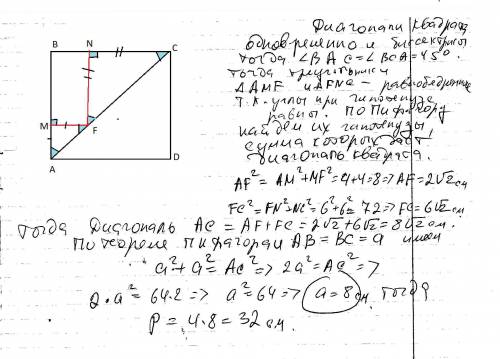 B N C
M F
A D
Диагонали квадрата
одновременно и биссектрисы
тогда ∠BAC=∠BCA=45°
тогда треугольники
ΔAMF и ΔFNC – равнобедренные
т.к. углы при гипотенузе
равны. По Пифагору
найдем их гипотенузы,
сумма которых даст
диагональ квадрата.
AF²=AM²+MF²=4+4=8=>AF=2√2см
FC²=FN²+NC²=6²+6²=72=>FC=6√2 см
тогда Диагональ AC=AF+FC=2√2+6√2=8√2 см.
По теореме Пифагора AB=BC=a имеем
a²+a²=AC²=>2a²=AC²=>
2·a²=64·2=> a²=64=> a=8см, тогда
P=4·8=32 см.